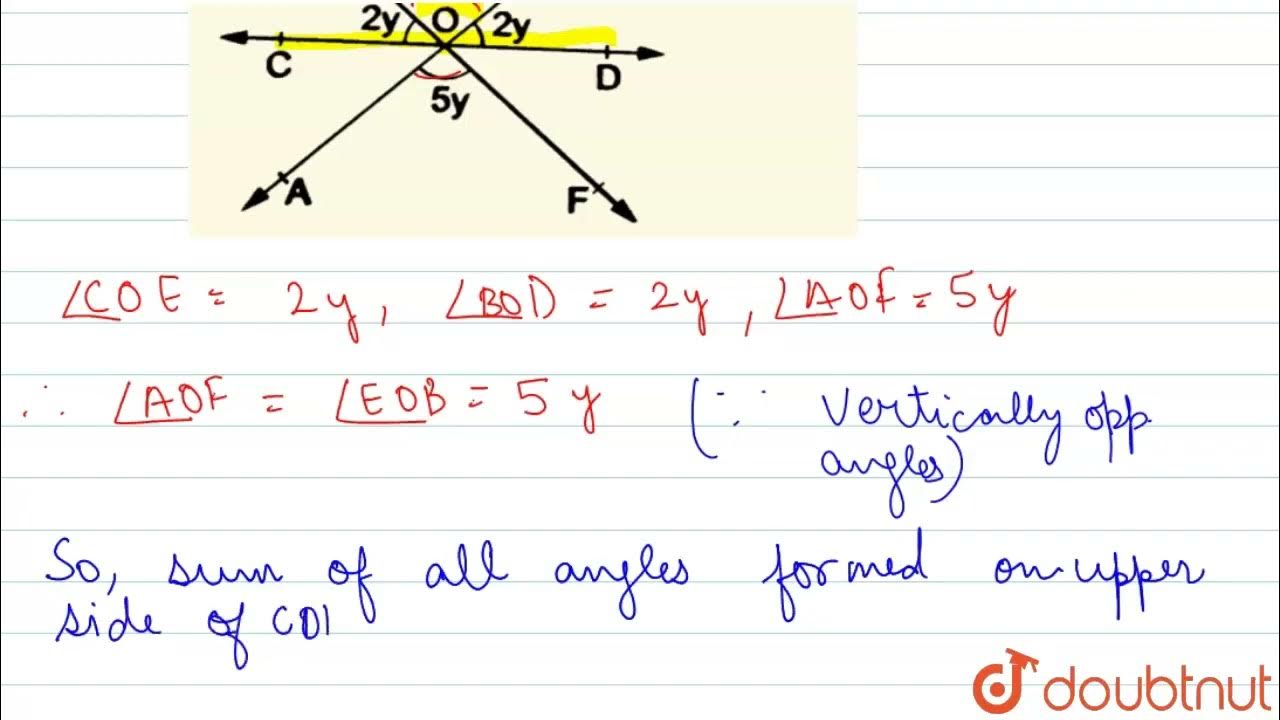 2y O 2y
C D
5y
A F
∠COE = 2y, ∠BOD = 2y, ∠AOF = 5y
∴ ∠AOF = ∠EOB = 5y (∵ Vertically opp.
angles)
So, sum of all angles formed on upper
side of CD
doubtnut